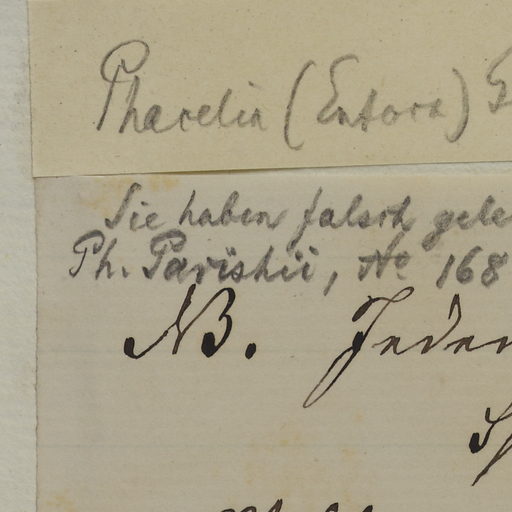 Phacelia (Eutoca) G
Sie haben falsch gele
Ph. Parishii, No 168
NB. Jeder